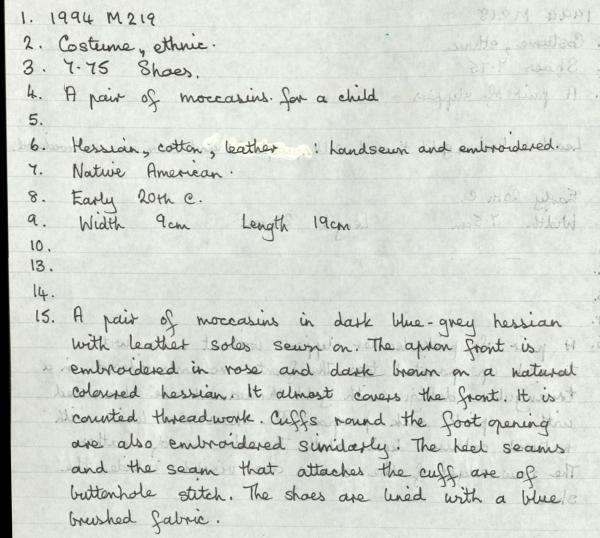 1. 1994 M219
2. Costume, ethnic.
3. 7.75 Shoes.
4. A pair of moccasins. for a child
5.
6. Hessian, cotton, leather : handsewn and embroidered.
7. Native American.
8. Early 20th C.
9. Width 9cm Length 19cm
10.
13.
14.
15. A pair of moccasins in dark blue-grey hessian
with leather soles sewn on. The apron front is
embroidered in rose and dark brown on a natural
coloured hessian. It almost covers the front. It is
counted threadwork. Cuffs round the foot opening
are also embroidered similarly. The heel seams
and the seam that attaches the cuff are of
buttonhole stitch. The shoes are lined with a blue
brushed fabric.